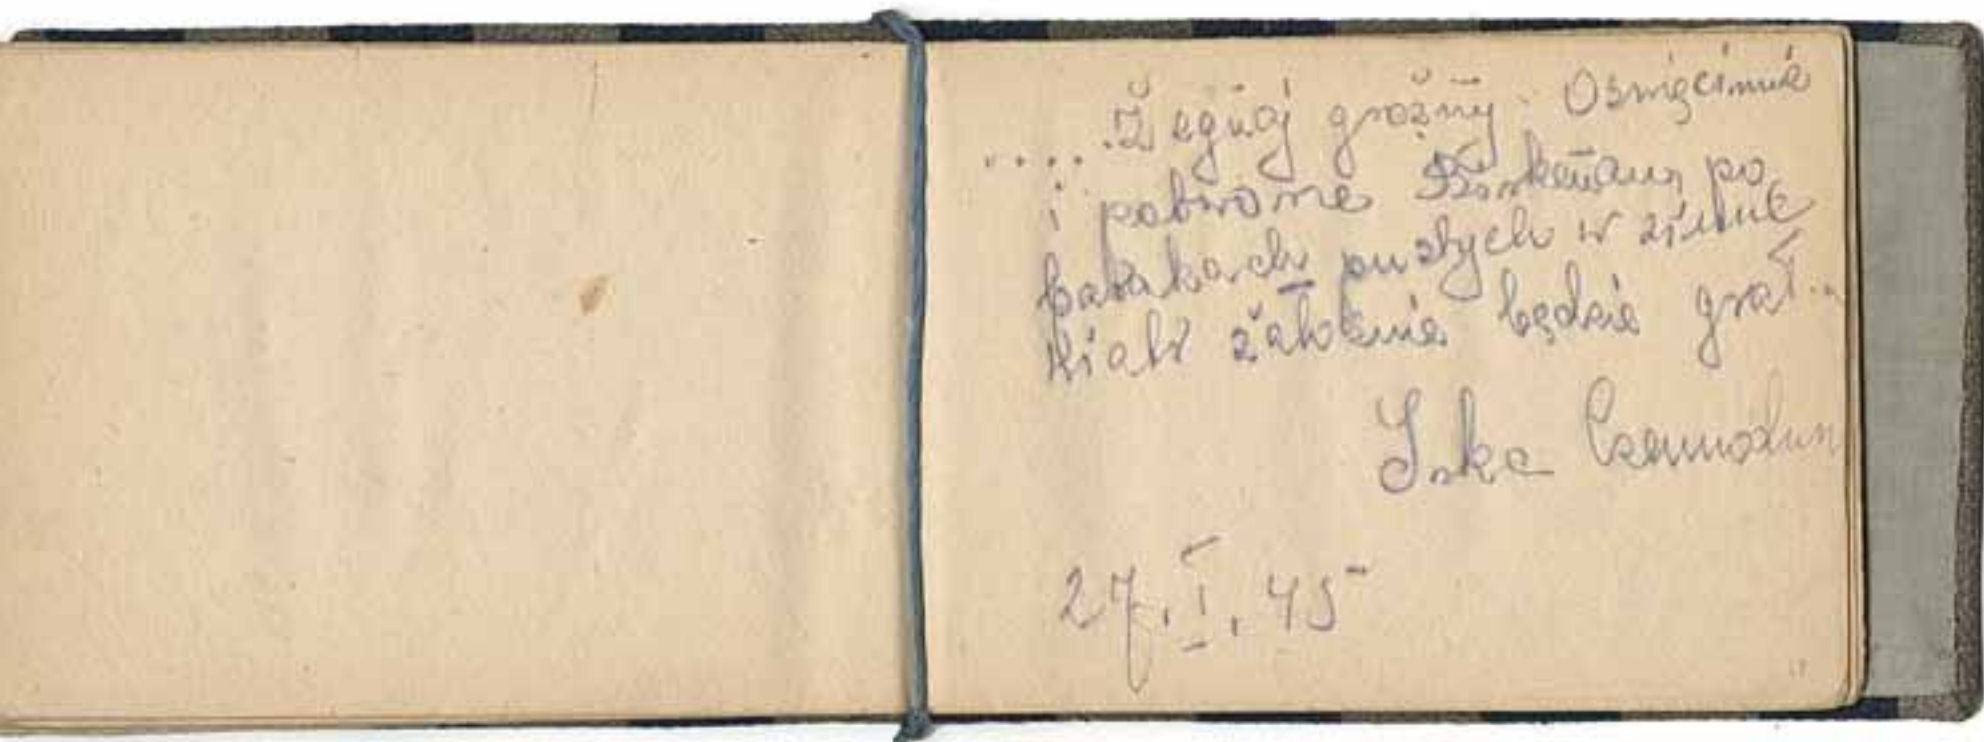 .....Żegnaj groźny Oświęcimie
i pobronne Birkenau, po
barakach pustych w zimie
Wiatr żałośnie będzie grał..
27.I.45